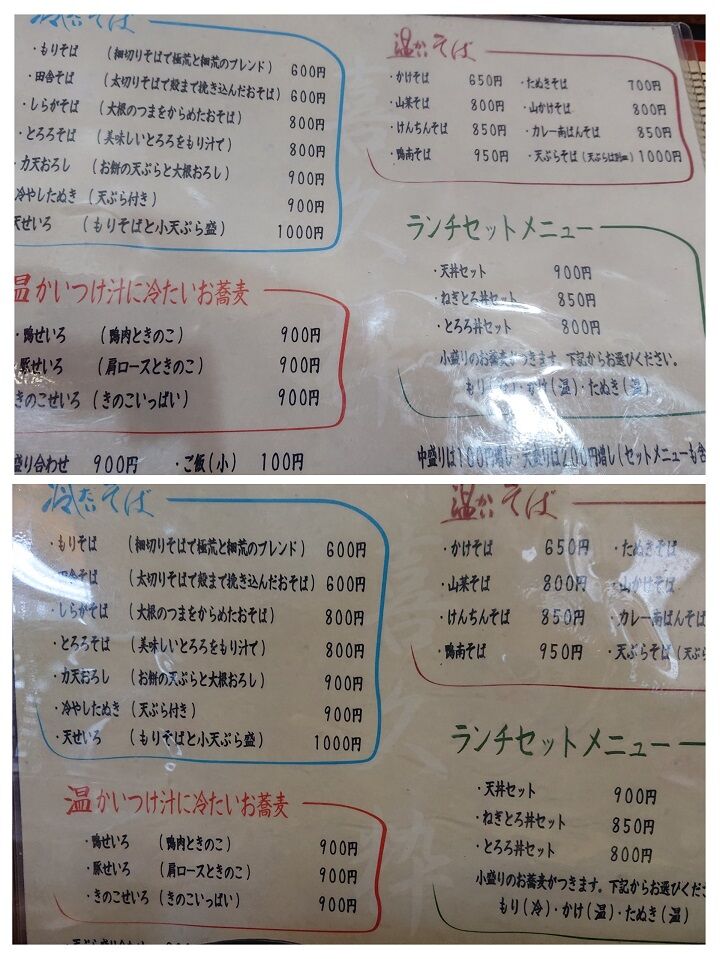 冷たいそば
・もりそば (細切りそばで極荒と細荒のブレンド) 600円
・田舎そば (太切りそばで殻まで挽き込んだおそば) 600円
・しらかそば (大根のつまをからめたおそば) 800円
・とろろそば (美味しいとろろをもり汁で) 800円
・力天おろし (お餅の天ぷらと大根おろし) 900円
冷やしたぬき (天ぷら付き) 900円
天せいろ (もりそばと小天ぷら盛) 1000円
温かいそば
・かけそば 650円 ・たぬきそば 700円
・山菜そば 800円 ・山かけそば 800円
・けんちんそば 850円 ・カレー南ばんそば 850円
・鴨南そば 950円 ・天ぷらそば (天ぷらは別皿) 1000円
温かいつけ汁に冷たいお蕎麦
・鴨せいろ (鴨肉ときのこ) 900円
・豚せいろ (肩ロースときのこ) 900円
きのこせいろ (きのこいっぱい) 900円
盛り合わせ 900円 ・ご飯(小) 100円
ランチセットメニュー
・天丼セット 900円
・ねぎとろ丼セット 850円
・とろろ丼セット 800円
小盛りのお蕎麦がつきます。下記からお選びください。
もり(冷)・かけ(温)・たぬき(温)
中盛りは100円増し・大盛りは200円増し(セットメニューも含
冷たいそば
・もりそば (細切りそばで極荒と細荒のブレンド) 600円
・田舎そば (太切りそばで殻まで挽き込んだおそば) 600円
・しらかそば (大根のつまをからめたおそば) 800円
・とろろそば (美味しいとろろをもり汁で) 800円
・力天おろし (お餅の天ぷらと大根おろし) 900円
・冷やしたぬき (天ぷら付き) 900円
・天せいろ (もりそばと小天ぷら盛) 1000円
温かいそば
・かけそば 650円 ・たぬきそば
・山菜そば 800円 ・山かけそば
・けんちんそば 850円 ・カレー南ばんそば
・鴨南そば 950円 ・天ぷらそば (天ぷら
温かいつけ汁に冷たいお蕎麦
・鴨せいろ (鴨肉ときのこ) 900円
・豚せいろ (肩ロースときのこ) 900円
・きのこせいろ (きのこいっぱい) 900円
・天ぷら盛り合わせ
ランチセットメニュー
・天丼セット 900円
・ねぎとろ丼セット 850円
・とろろ丼セット 800円
小盛りのお蕎麦がつきます。下記からお選びくださ
もり(冷)・かけ(温)・たぬき(温)